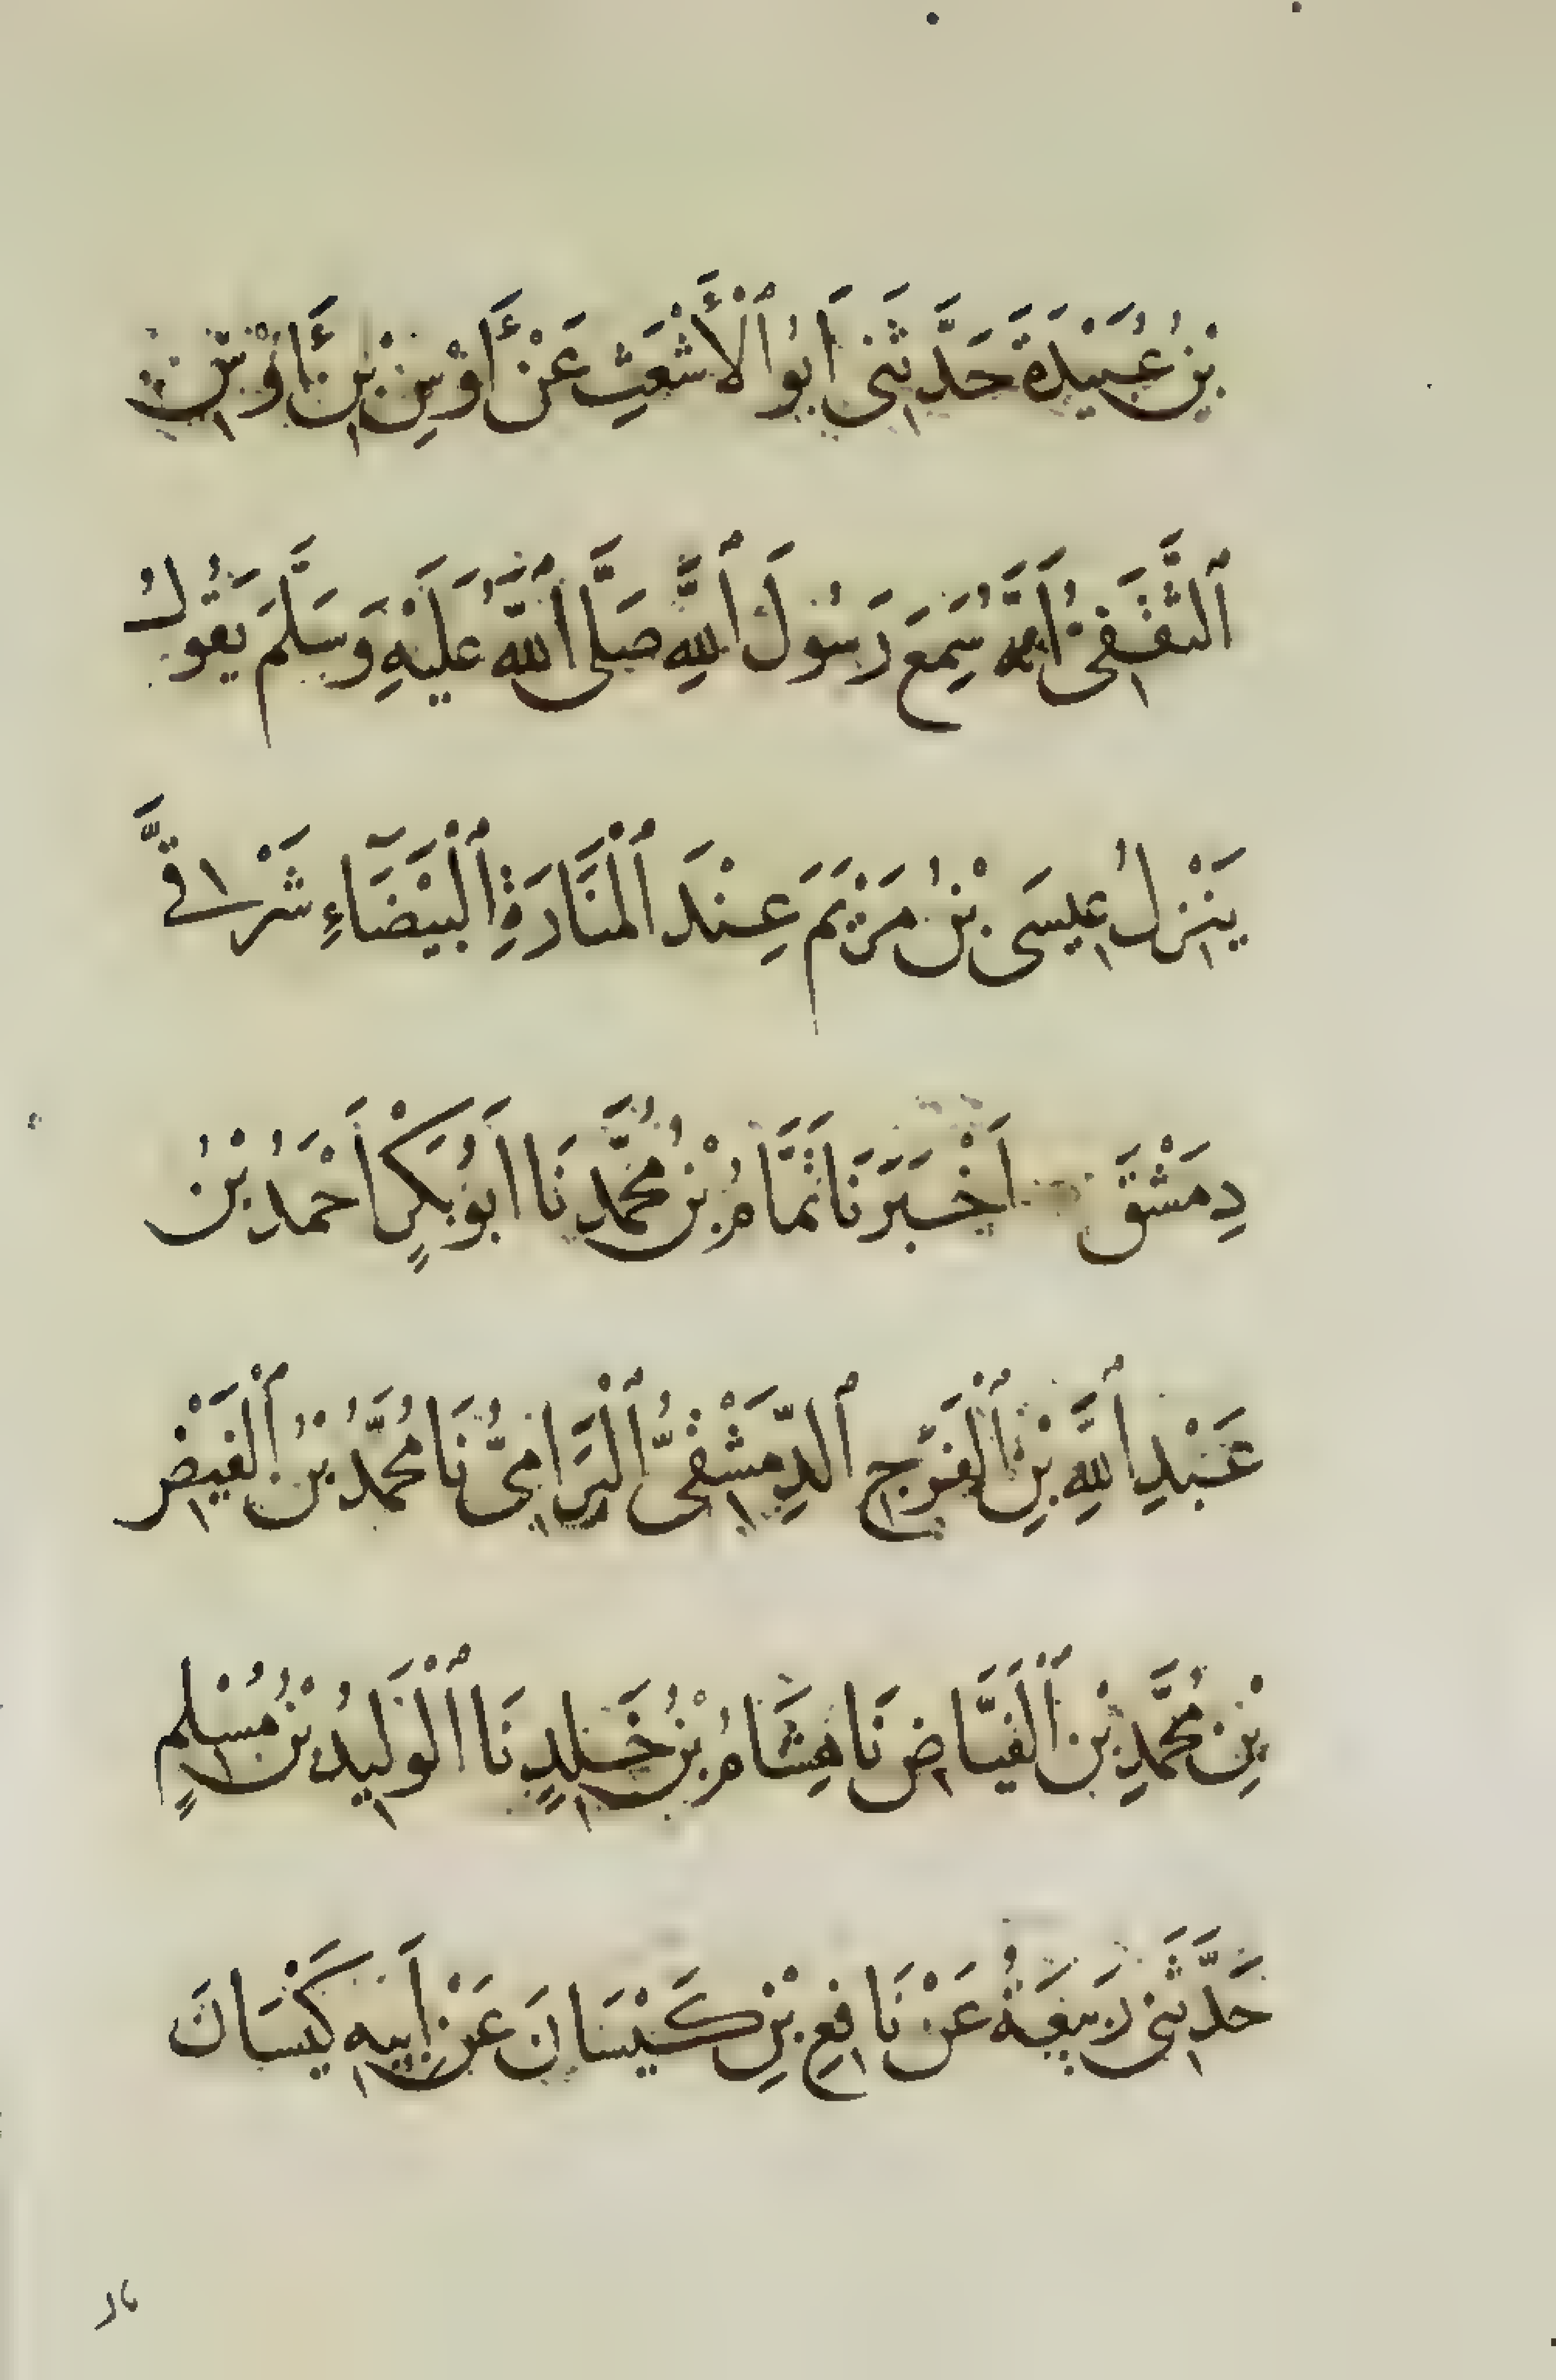 بْنُ عُبَيْدَةَ حَدَّثَنِي أَبُو ٱلْأَشْعَثِ عَنْ أَوْسِ بْنِ أَوْسٍ
ٱلثَّقَفِيِّ أَنَّهُ سَمِعَ رَسُولَ ٱللَّهِ صَلَّى ٱللَّهُ عَلَيْهِ وَسَلَّمَ يَقُولُ
يَنْزِلُ عِيسَى بْنُ مَرْيَمَ عِنْدَ ٱلْمَنَارَةِ ٱلْبَيْضَآءِ شَرْقِيَّ
دِمَشْقَ أَخْبَرَنَا تَمَّامُ بْنُ مُحَمَّدٍ نَا أَبُو بَكْرٍ أَحْمَدُ بْنُ
عَبْدِ ٱللَّهِ بْنِ ٱلْفَرَجِ ٱلدِّمَشْقِيُّ ٱلْبَرَامِيُّ نَا مُحَمَّدُ بْنُ ٱلْفَيْضِ
بْنِ مُحَمَّدِ بْنِ ٱلْفَيَّاضِ نَا هِشَامُ بْنُ خَلِدٍ نَا ٱلْوَلِيدُ بْنُ مُسْلِمٍ
حَدَّثَنِي رَبِيعَةُ عَنْ نَافِعِ بْنِ كَيْسَانَ عَنْ أَبِيهِ كَيْسَانَ